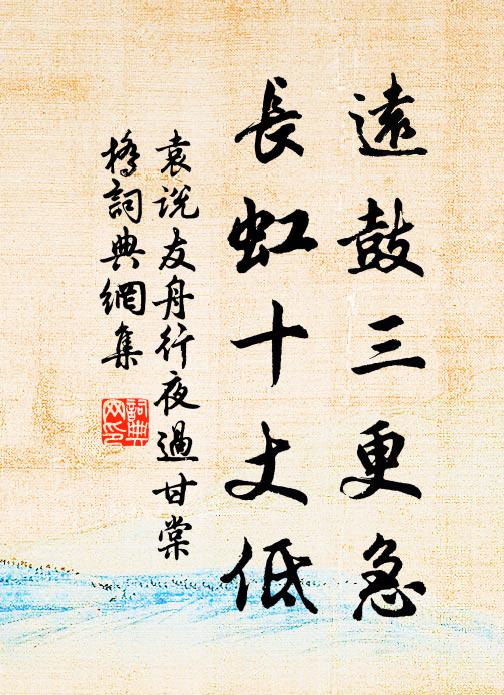 遠鼓三更急
長虹十丈低
袁说友舟行夜過甘棠
橋詞典網集
詞典
网印